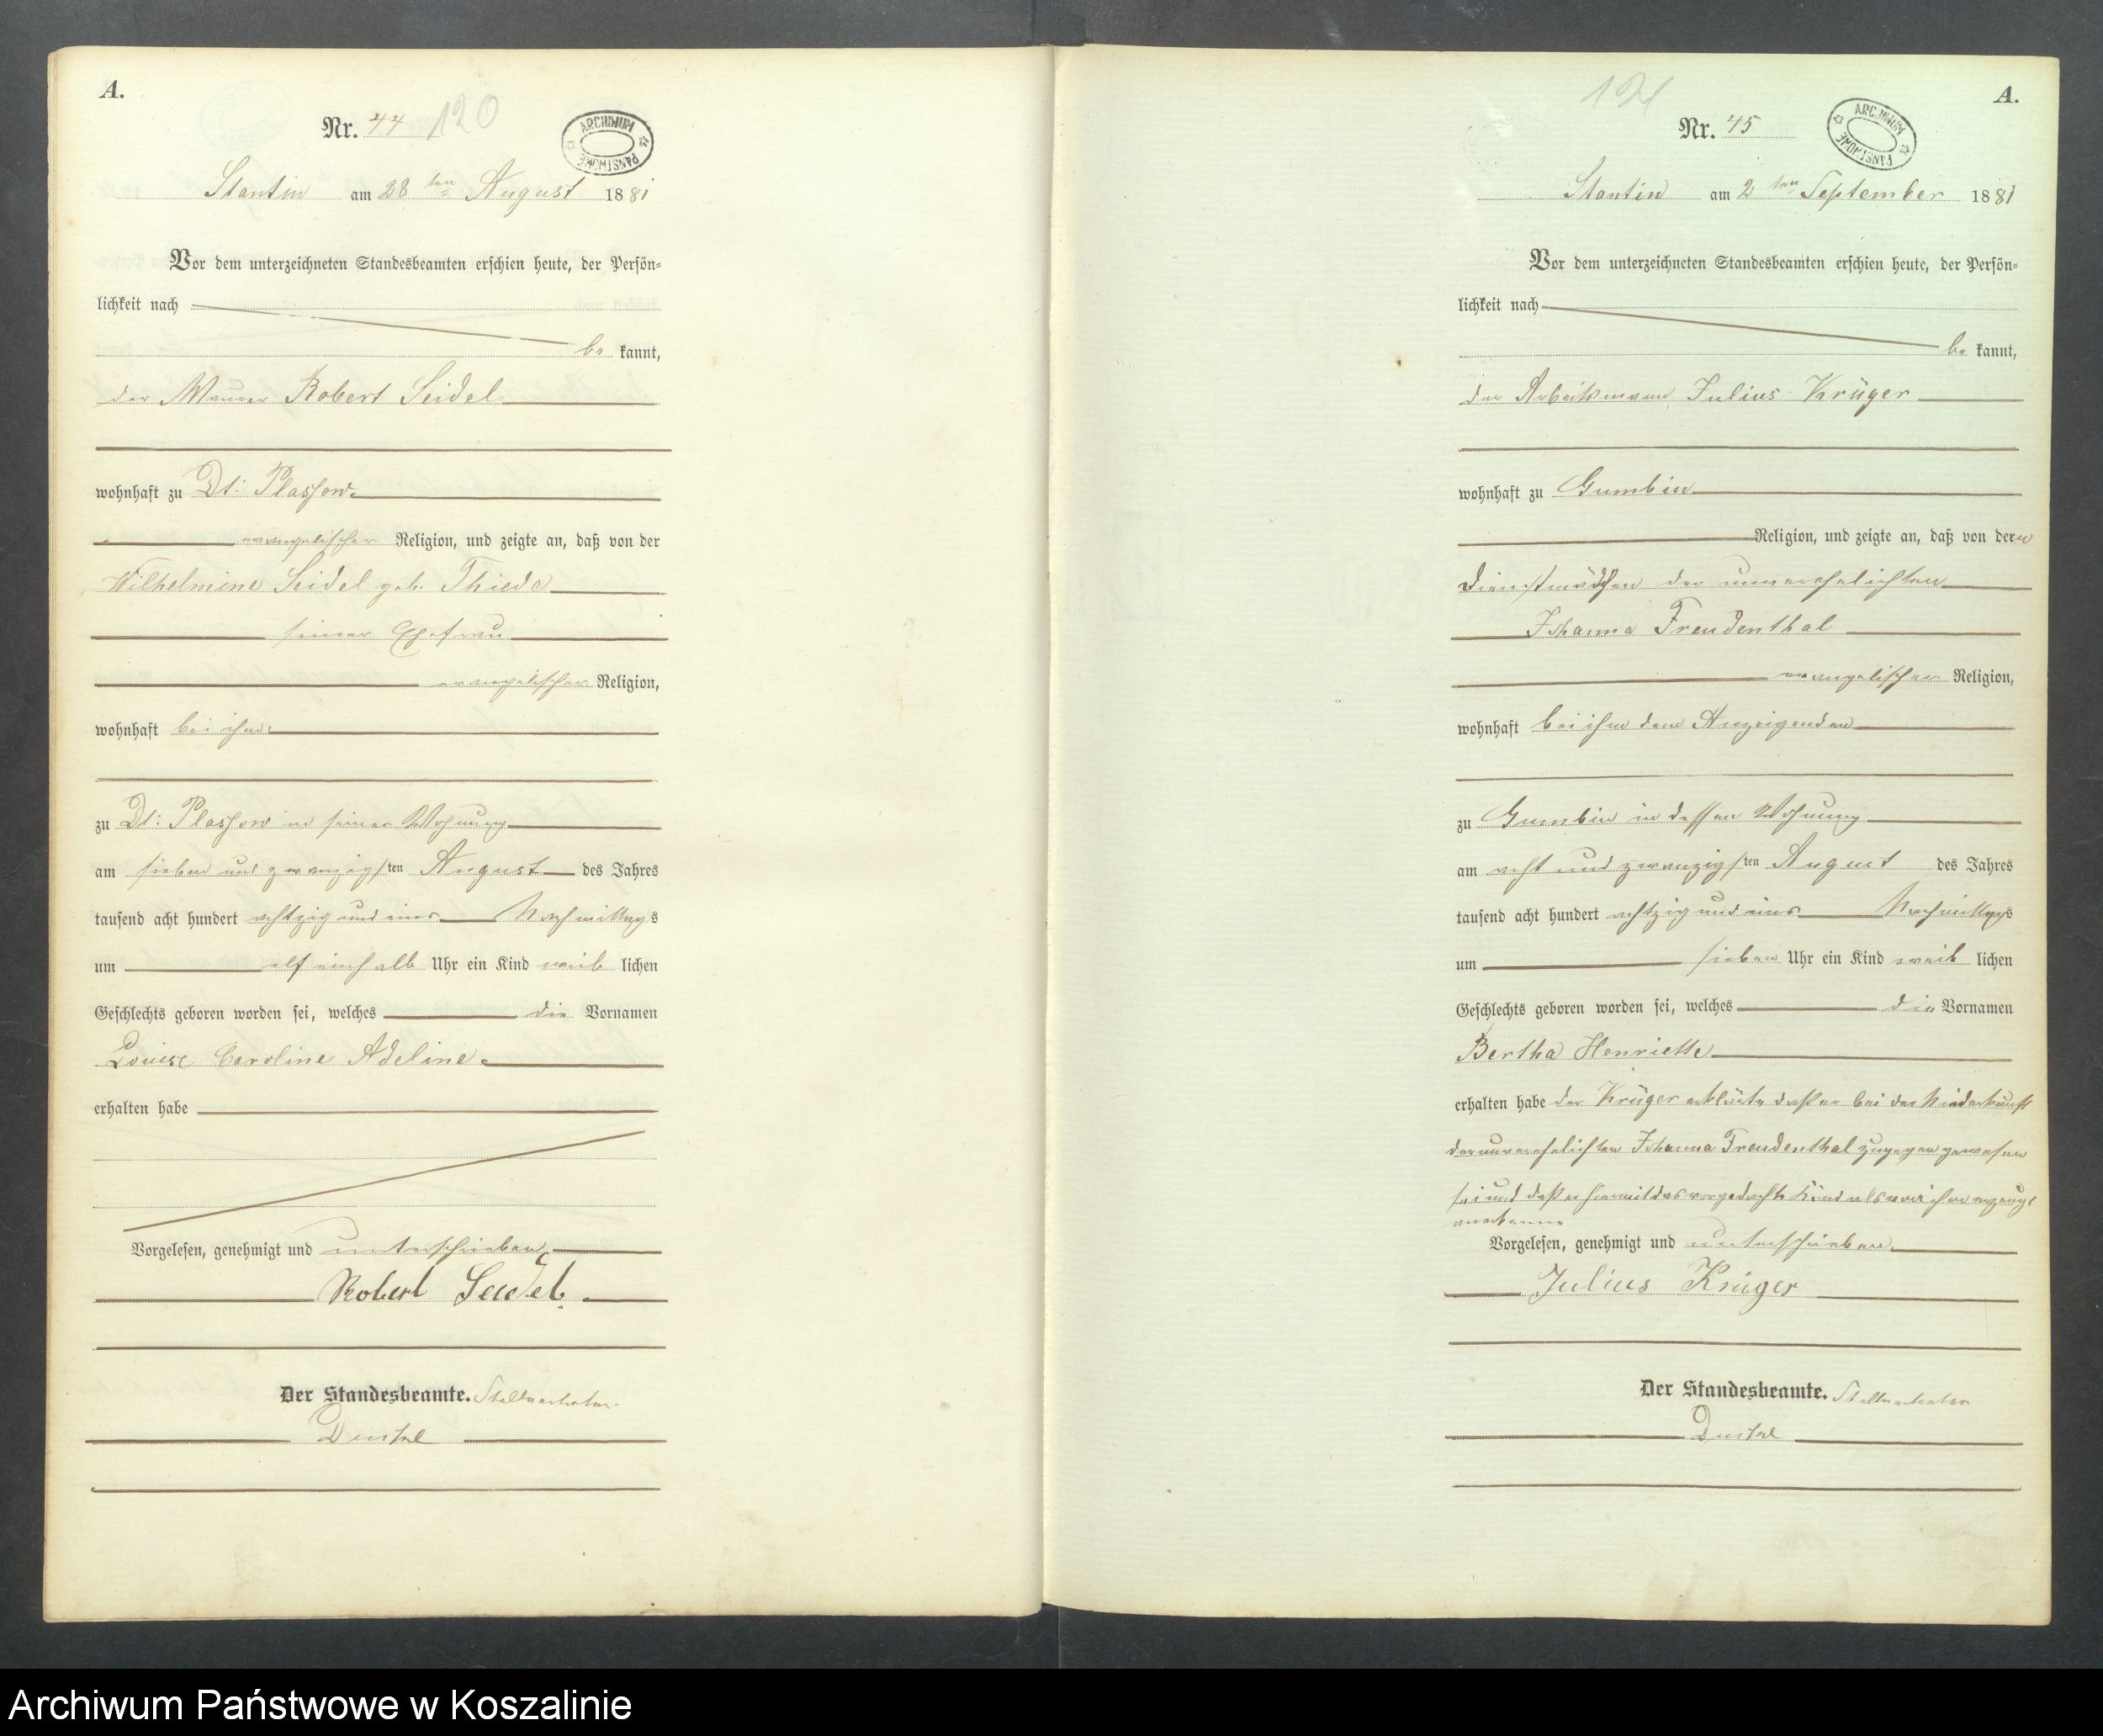 A.
Nr. 44 120
ARCHIWUM PAŃSTWOWE
Stantin am 28 ten August 1881
Vor dem unterzeichneten Standesbeamten erschien heute, der Persön=
lichkeit nach
be kannt,
der Maurer Robert Seidel
wohnhaft zu Dt: Plassow
evangelischer Religion, und zeigte an, daß von der
Wilhelmine Seidel geb. Thiede
seiner Ehefrau
evangelischer Religion,
wohnhaft bei ihm
zu Dt: Plassow in seiner Wohnung
am sieben und zwanzigsten August des Jahres
tausend acht hundert achtzig und eins Nachmittags
um elf einhalb Uhr ein Kind weib lichen
Geschlechts geboren worden sei, welches die Vornamen
Louise Caroline Adeline
erhalten habe
Vorgelesen, genehmigt und unterschrieben
Robert Seidel.
Der Standesbeamte. Stellvertreter
A.
121
Nr. 45
ARCHIWUM PAŃSTWOWE
Stantin am 2 ten September 1881
Vor dem unterzeichneten Standesbeamten erschien heute, der Persön=
lichkeit nach
be kannt,
der Arbeitsmann Julius Krüger
wohnhaft zu Gumbin
Religion, und zeigte an, daß von der
Dienstmädchen der unverehelichten
Johanna Freudenthal
evangelischer Religion,
wohnhaft bei ihm dem Anzeigenden
zu Gumbin in dessen Wohnung
am acht und zwanzigsten August des Jahres
tausend acht hundert achtzig und eins Nachmittags
um sieben Uhr ein Kind weib lichen
Geschlechts geboren worden sei, welches die Vornamen
Bertha Henriette
erhalten habe der Krüger erklärte daß er bei der Niederkunft
der unverehelichten Johanna Freudenthal zugegen gewesen
sei und daß er hiermit das vorgedachte Kind als von ihm erzeugt
anerkenne
Vorgelesen, genehmigt und unterschrieben
Julius Krüger
Der Standesbeamte. Stellvertreter
Archiwum Państwowe w Koszalinie